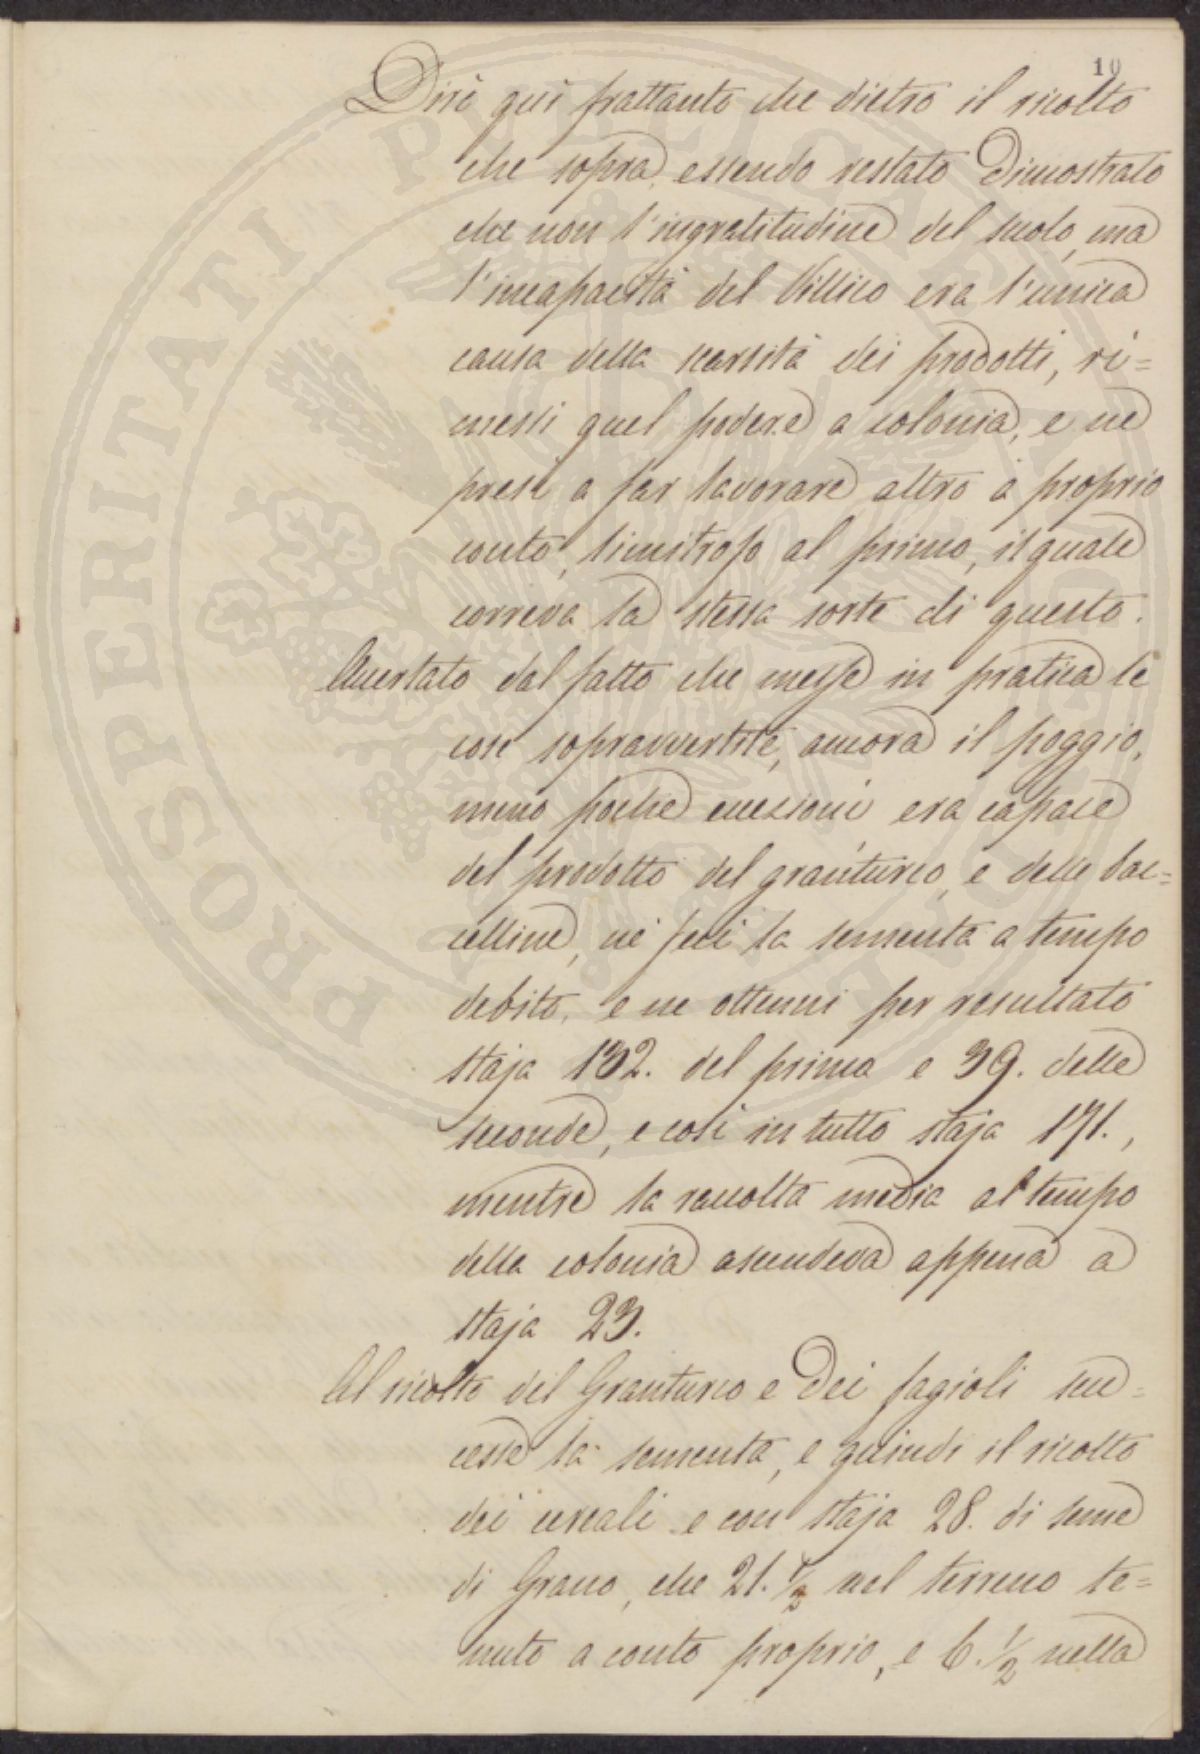 10
Dirò quì frattanto che dietro il ricolto
che sopra, essendo restato dimostrato
che non l'ingratitudine del suolo, ma
l'incapacità del Villico era l'unica
causa della scarsità dei prodotti, ri=
messi quel podere a colonia, e ne
presi a far lavorare altro a proprio
conto, limitrofo al primo, il quale
correva la stessa sorte di questo.
Accertato dal fatto che messe in pratica le
cose sopravvertite, ancora il poggio,
meno poche eccezioni era capace
del prodotto del granturco, e delle bac=
celline, ne feci la sementa a tempo
debito, e ne ottenni per resultato
staja 132. del primo e 39. delle
seconde, e così in tutto staja 171.,
mentre la raccolta media al tempo
della colonia ascendeva appena a
staja 23.
Al ricolto del Granturco e dei fagioli suc=
cesse la sementa, e quindi il ricolto
dei cereali e con staja 28. di seme
di Grano, che 21. 1/2 nel terreno te=
nuto a conto proprio, e 6. 1/2 nella
PROSPERITATI PVBLICAE AVGENDAE